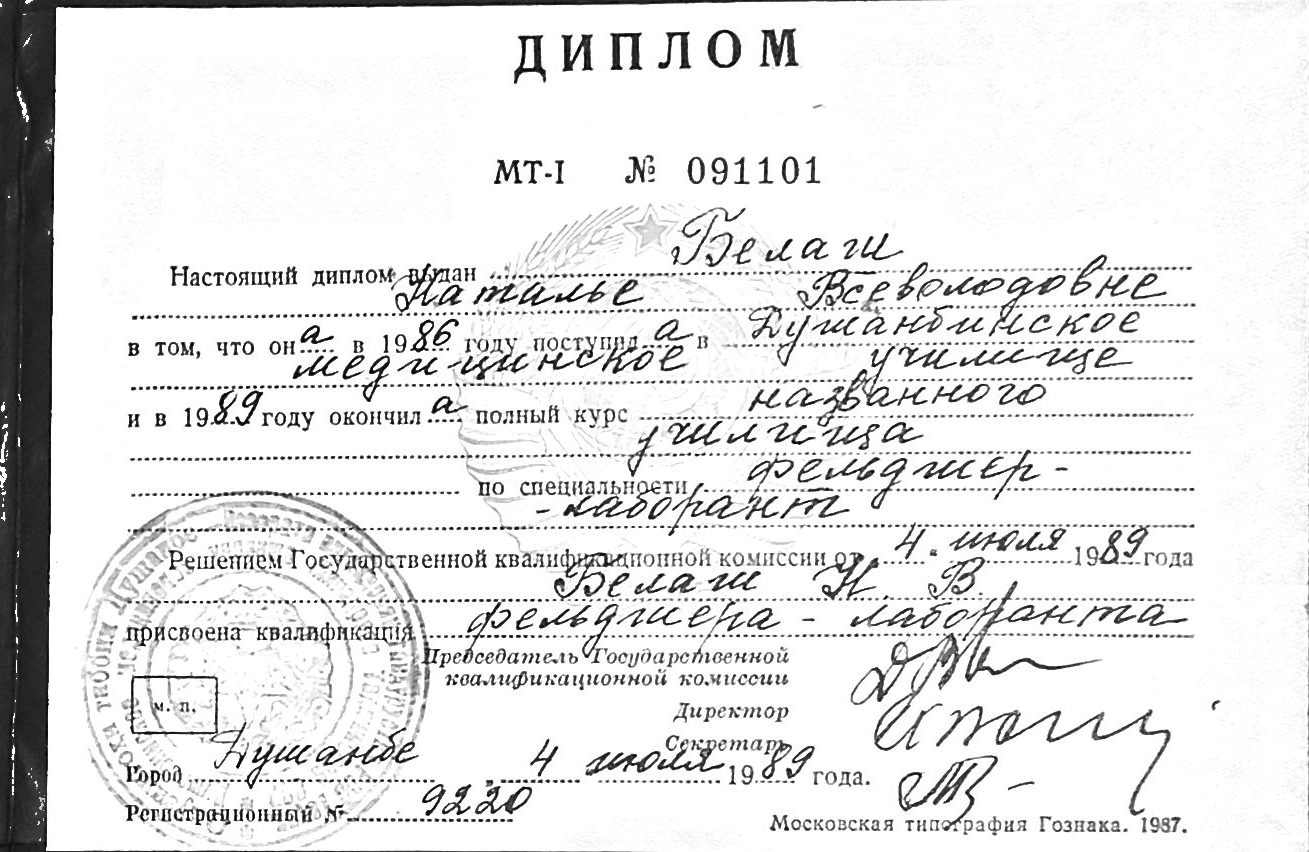 ДИПЛОМ
МТ-I № 091101
Настоящий диплом выдан Белаш
Наталье Всеволодовне
в том, что она в 1986 году поступила в Душанбинское
медицинское училище
и в 1989 году окончила полный курс названного
училища
по специальности фельдшер-
-лаборант
Решением Государственной квалификационной комиссии от 4 июля 1989 года
Белаш Н. В.
присвоена квалификация фельдшера-лаборанта
Председатель Государственной
квалификационной комиссии
Директор
Секретарь
м. п.
Город Душанбе „ 4 июля 1989 года.
Регистрационный № 9220
Московская типография Гознака. 1987.